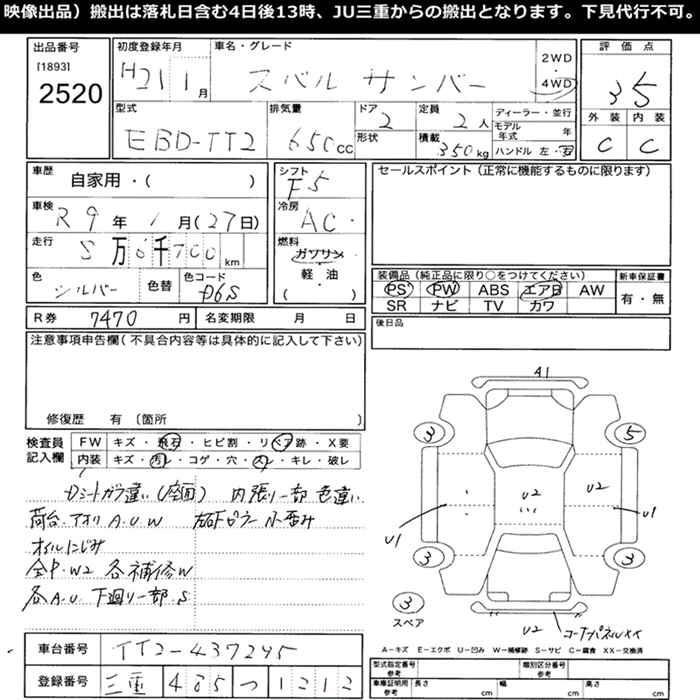 映像出品）搬出は落札日含む4日後13時、JU三重からの搬出となります。下見代行不可。
出品番号
[1893]
2520
初度登録年月
H21 1月
車名・グレード
スバル サンバー
2WD
・
4WD
評価点
3.5
外装 内装
C C
型式
EBD-TT2
排気量
650CC
ドア
2
形状
定員
2人
積載
350kg
ディーラー・並行
モデル年式 年
ハンドル 左・右
車歴
自家用・( )
車検
R9年 1月(27日)
走行
5万6千700km
色
シルバー
色替
色コード
D6S
シフト
F5
冷房
AC
燃料
ガソリン
軽・油
( )
セールスポイント（正常に機能するものに限ります）
装備品（純正品に限り○をつけてください）
PS PW ABS エアB AW
SR ナビ TV カワ
新車保証書
有・無
R券 7470円
名変期限 月 日
後日品
注意事項申告欄（不具合内容等は具体的に記入して下さい）
修復歴 有〔箇所 〕
検査員記入欄
FW キズ・飛石・ヒビ割・リペア跡・X要
内装 キズ・汚れ・コゲ・穴・スレ・キレ・破レ
Dシートガラ違い（座面） 内張り一部色違い
荷台.アオリ A.U.W
小歪み
オイルにじみ
全P.W2 各補修W
各A.U 下廻り一部.S
A1
3
5
U2
U2
U1
U1
3
3
3
スペア
U2
コーナーパネルXX
A－キズ E－エクボ U－凹み W－補修跡 S－サビ C－腐食 XX－交換済
車台番号
TT2-437245
登録番号
三重 485 つ 1212
型式指定番号
参考
類別区分番号
参考
車庫証明用
参考
長さ cm
幅 cm
高さ cm